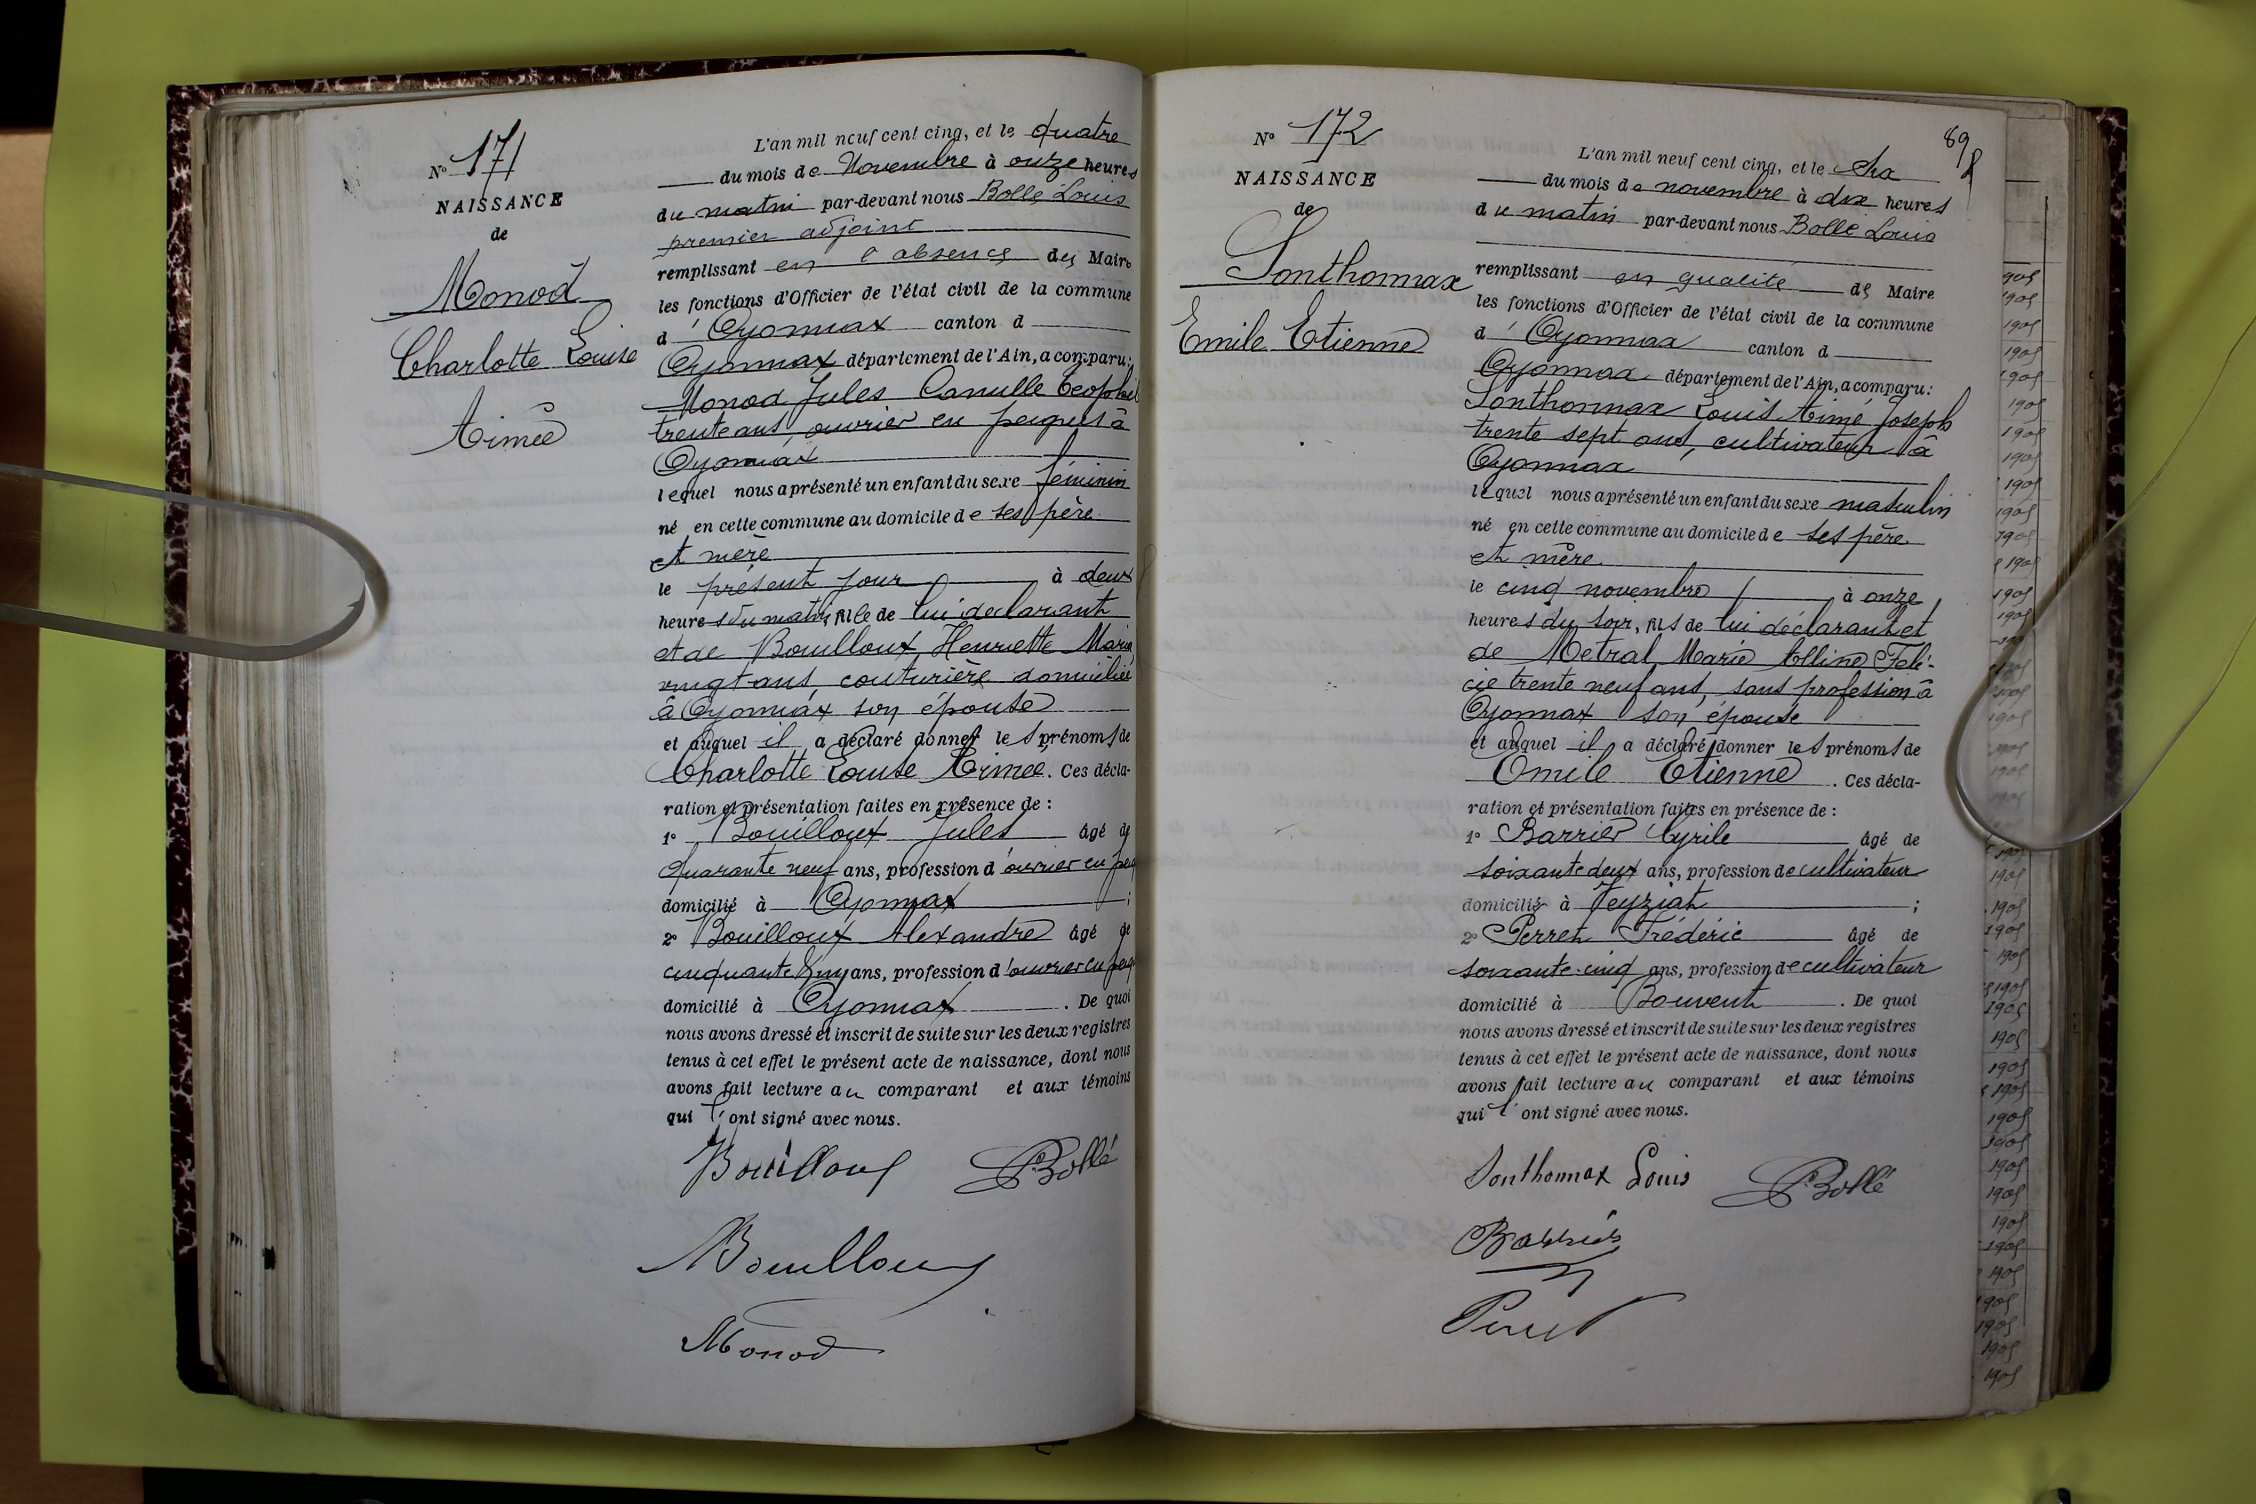 N° 171
NAISSANCE
de
Monod
Charlotte Louise
Aimée
L'an mil neuf cent cinq, et le quatre
du mois de Novembre à onze heures
du matin par-devant nous Bollé Louis
premier adjoint
remplissant en l'absence du Maire
les fonctions d'Officier de l'état civil de la commune
d'Oyonnax canton d
Oyonnax département de l'Ain, a comparu:
Monod Jules Camille
trente ans, ouvrier en peignes à
Oyonnax
lequel nous a présenté un enfant du sexe féminin
né en cette commune au domicile de ses père
et mère
le présent jour à deux
heures du matin, fille de lui déclarant
et de Bouilloux Henriette Marie
vingt ans, couturière domiciliée
à Oyonnax son épouse
et auquel il a déclaré donner les prénoms de
Charlotte Louise Aimée. Ces décla-
ration et présentation faites en présence de :
1° Bouilloux Jules âgé de
quarante neuf ans, profession d'ouvrier en peig
domicilié à Oyonnax ;
2° Bouilloux Alexandre âgé de
cinquante ans, profession d'ouvrier en peig
domicilié à Oyonnax . De quoi
nous avons dressé et inscrit de suite sur les deux registres
tenus à cet effet le présent acte de naissance, dont nous
avons fait lecture au comparant et aux témoins
qui l'ont signé avec nous.
Bouilloux Bollé
Bouilloux
Monod
89
N° 172
NAISSANCE
de
Sonthonnax
Emile Etienne
L'an mil neuf cent cinq, et le Six
du mois de novembre à dix heures
du matin par-devant nous Bollé Louis
remplissant en qualité de Maire
les fonctions d'Officier de l'état civil de la commune
d'Oyonnax canton d
Oyonnax département de l'Ain, a comparu:
Sonthonnax Louis Aimé Joseph
trente sept ans, cultivateur à
Oyonnax
lequel nous a présenté un enfant du sexe masculin
né en cette commune au domicile de ses père
et mère
le cinq novembre à onze
heures du soir, fils de lui déclarant et
de Metral Marie Alline Féli-
cie trente neuf ans, sans profession à
Oyonnax son épouse
et auquel il a déclaré donner les prénoms de
Emile Etienne . Ces décla-
ration et présentation faites en présence de :
1° Barrier Cyrile âgé de
soixante deux ans, profession de cultivateur
domicilié à Veyziat ;
2° Perret Frédéric âgé de
soixante-cinq ans, profession de cultivateur
domicilié à Bouvent . De quoi
nous avons dressé et inscrit de suite sur les deux registres
tenus à cet effet le présent acte de naissance, dont nous
avons fait lecture au comparant et aux témoins
qui l'ont signé avec nous.
Sonthonnax Louis Bollé
Barrier
Perret